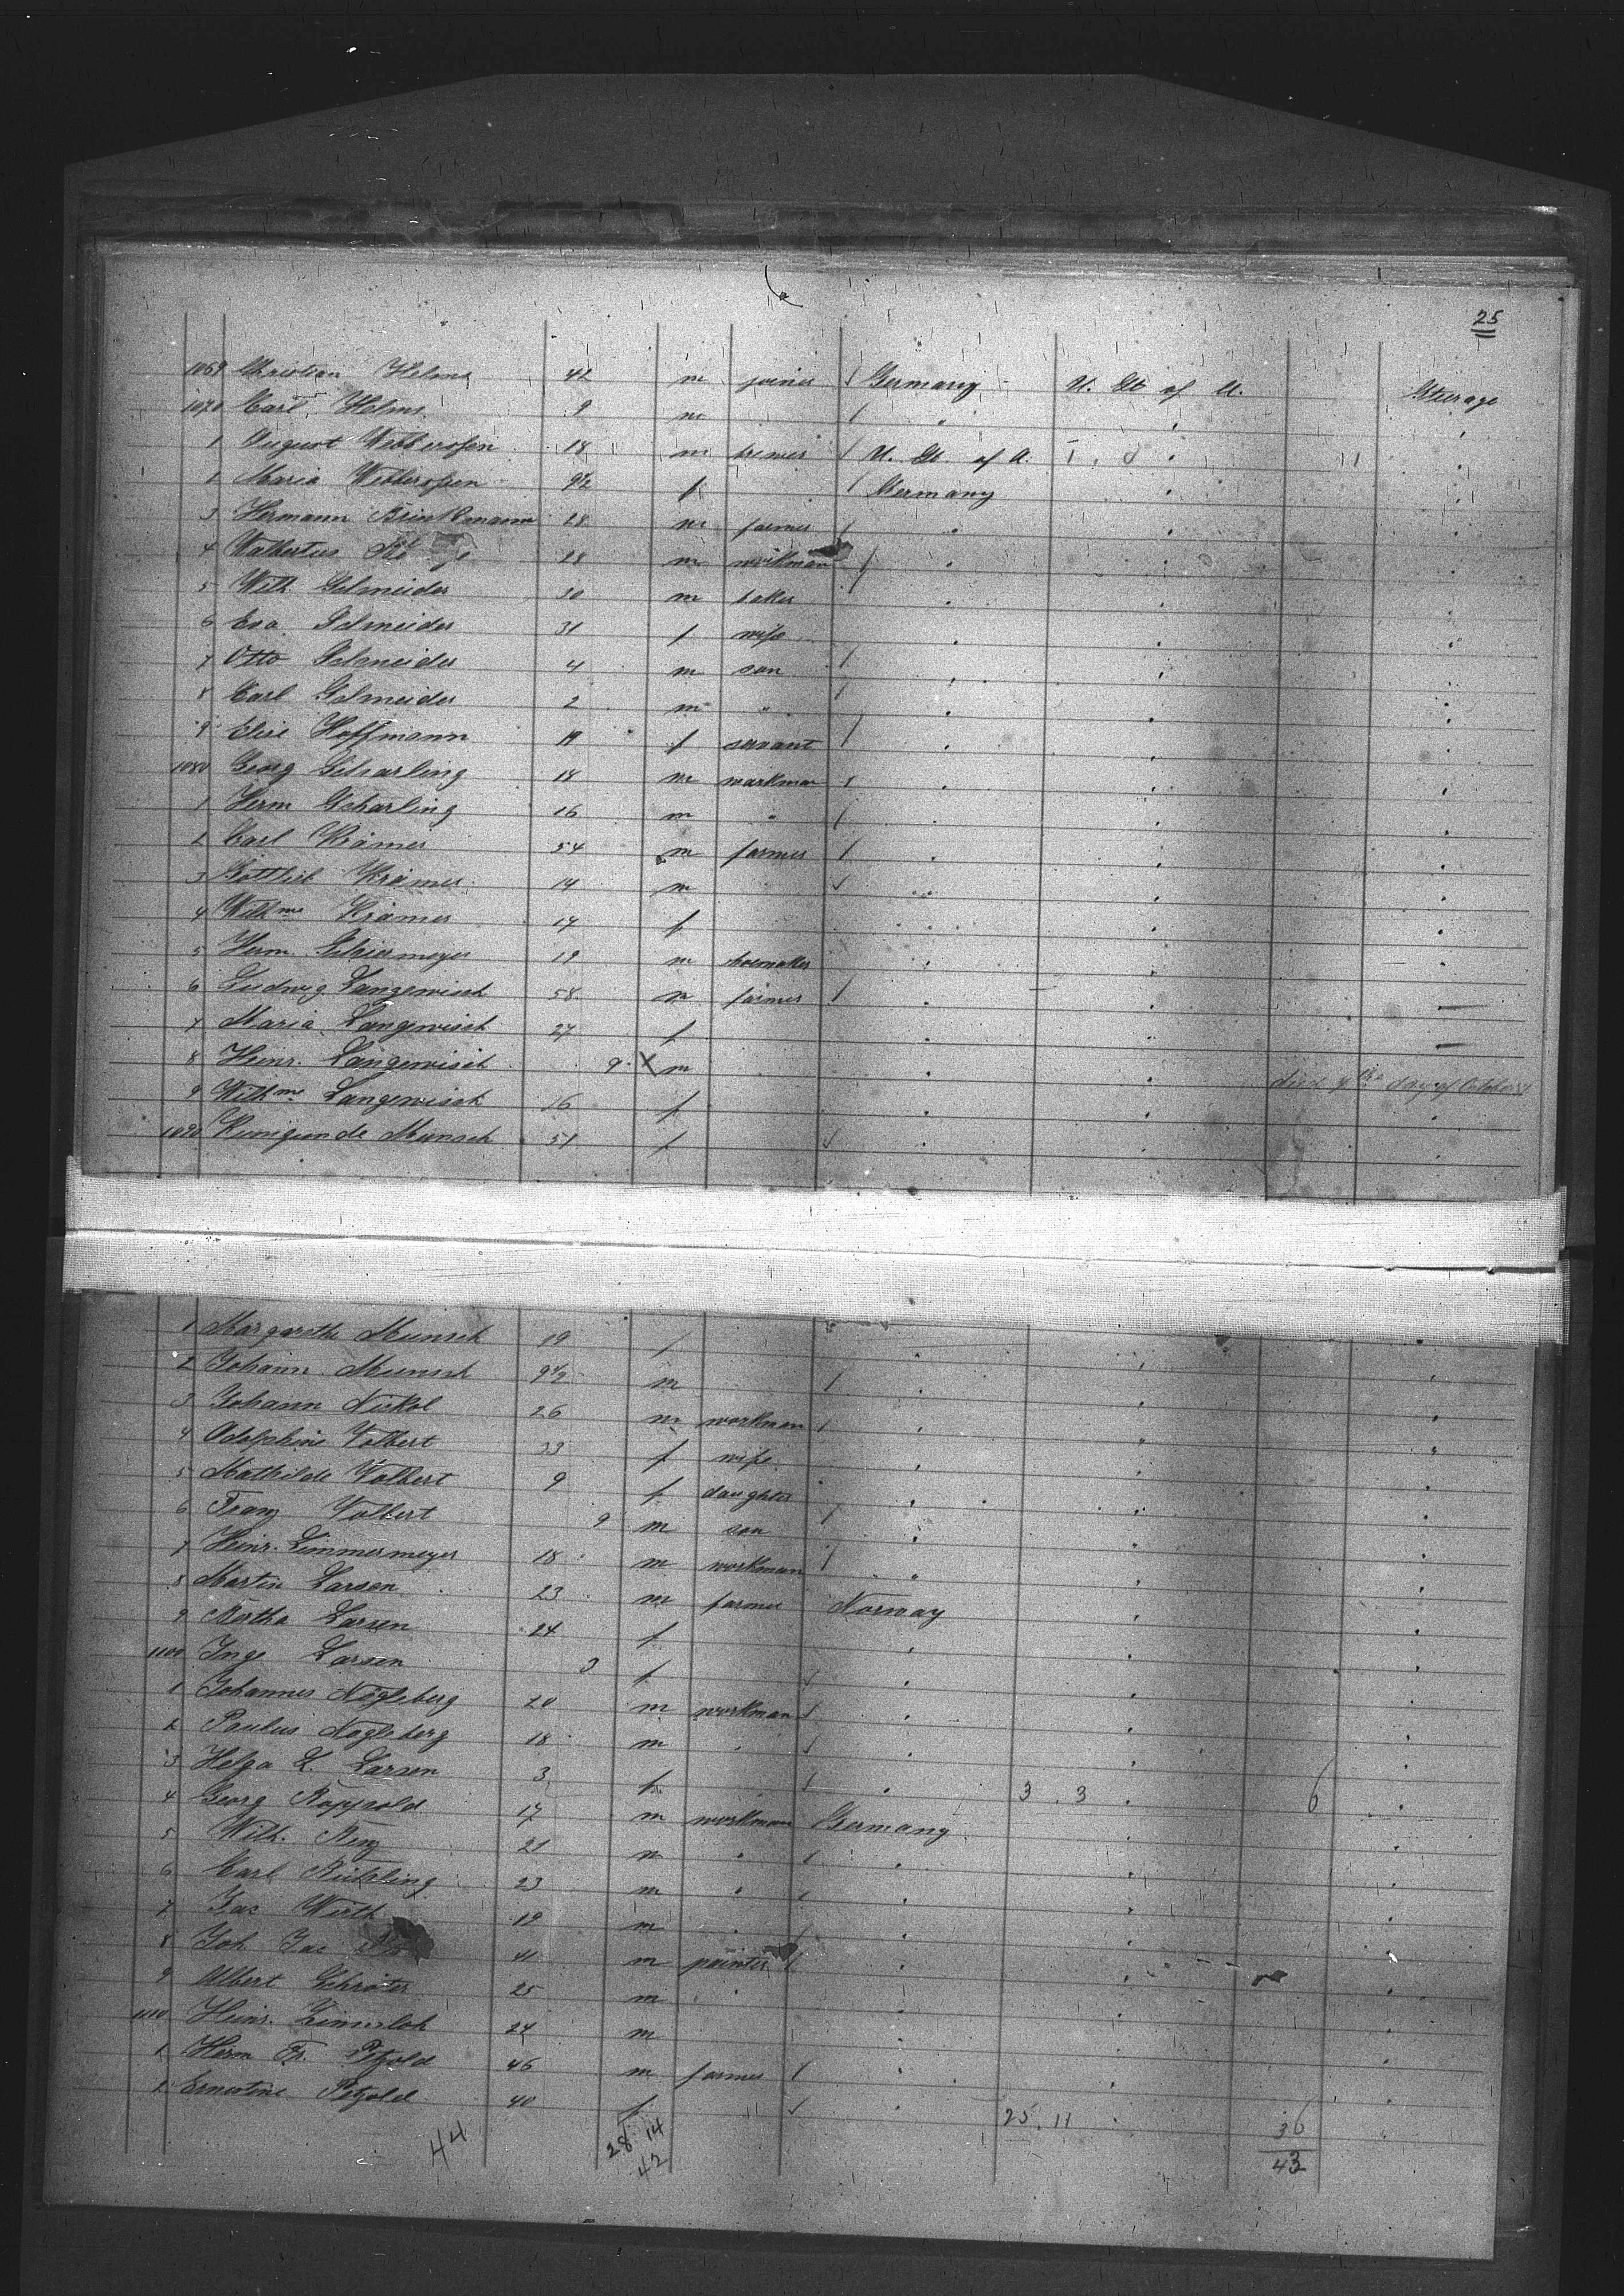 25
1069 Christian Helms 42 m joiner Germany U. St. of A. Steerage
1070 Carl Helms 9 m " "
1 August Wibberofsen 18 m brewer U. St. of A. 1
2 Maria Wibberofsen 9½ f Germany
3 Hermann Brinkmann 28 m farmer
4 28 m workman
5 Wilh Schneider 30 m baker
6 Eva Schneider 31 f wife
7 Otto Schneider 4 m son
8 Carl Schneider 2 m "
9 Elise Hoffmann 19 f servant
1080 Georg Scharling 18 m workman
1 Herm Scharling 16 m "
2 Carl Krämer 54 m farmer
3 Gottlieb Krämer 14 m
4 Wilhme Krämer 17 f
5 Herm. Schiermeyer 19 m shoemaker
6 Ludwig Langewisch 58 m farmer
7 Maria Langewisch 27 f
8 Heinr. Langewisch 9 X m died 4th day of October
9 Wilhme Langewisch 16 f
1090 Kunigunde Münsch 51 f
1 Margarethe Münsch 19 f
2 Johann Münsch 9½ m
3 Johann Nickol 26 m workman
4 Adolphine Volbert 33 f wife
5 Mathilde Volbert 9 f daughter
6 Franz Volbert 9 m son
7 Heinr. Zimmermeyer 18 m workman
8 Martin Larsen 23 m farmer Norway
9 Bertha Larsen 24 f
1100 Inge Larsen 3 f
1 Johannes Nogleberg 20 m workman
2 Paulus Nogleberg 18 m
3 Helga L. Larsen 3 f 3 3 6
4 Georg Roppold 17 m workman Germany
5 Wilh. 21 m "
6 Carl 23 m "
7 Jac Wirth 19 m
8 Joh Jac 41 m painter
9 Albert Schröter 25 m
1110 Heinr. 24 m
1 Herm Fr. Petzold 46 m farmer
2 Ernestine Petzold 40 f 25 11 36
44 28 14 43
42